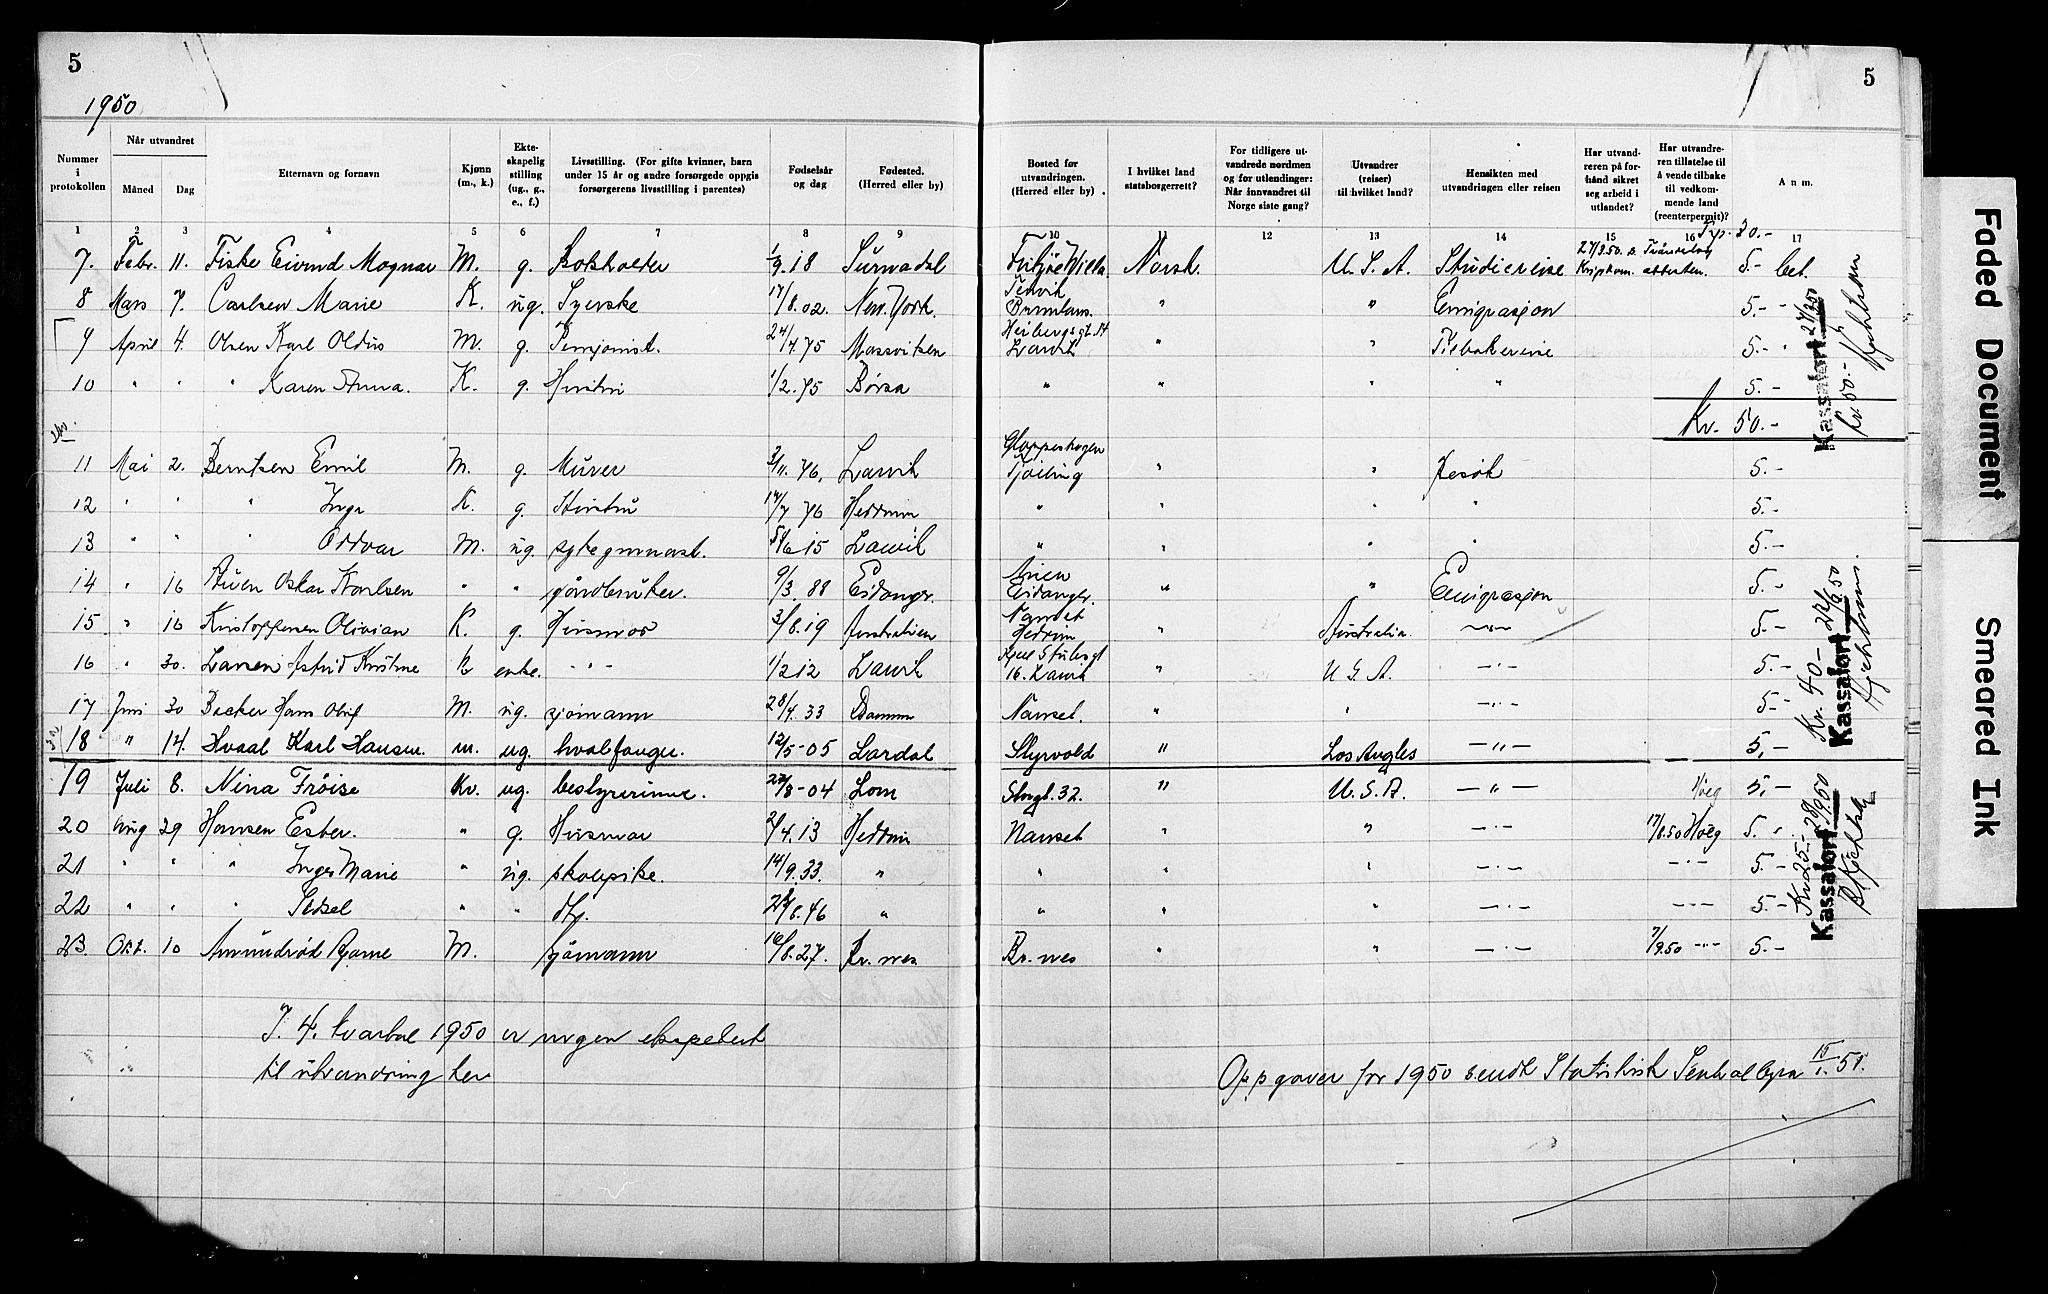 5
5
1950
Nummer i protokollen
Når utvandret
Måned
Dag
Etternavn og fornavn
Kjønn (m., k.)
Ekteskapelig stilling (ug., g., e., f.)
Livsstilling. (For gifte kvinner, barn under 15 år og andre forsørgede oppgis forsørgerens livsstilling i parentes)
Fødselsår og dag
Fødested. (Herred eller by)
Bosted før utvandringen. (Herred eller by)
I hvilket land statsborgerrett?
For tidligere utvandrede nordmen og for utlendinger: Når innvandret til Norge siste gang?
Utvandrer (reiser) til hvilket land?
Hensikten med utvandringen eller reisen
Har utvandreren på forhånd sikret seg arbeid i utlandet?
Har utvandreren tillatelse til å vende tilbake til vedkommende land (reenterpermit)?
Anm.
1 2 3 4 5 6 7 8 9 10 11 12 13 14 15 16 17
7. Febr. 11. Fiske Eivind Magnar M. g. 1/9.18 Surnadal Norsk. U.S.A. Studiereise 5.- bet.
8 Mars 7. Carlsen Marie K. ug. Syerske 17/8.02. New York. " " Emigrasjon 5.- "
9 April 4. Olsen Karl Oldus M. g. Pensjonist. 24/4.75 Larvik " " 5.- "
10 " " " Karen Anna. K. g. Hustru 1/2.75 Børsa " " " " 5.-
Kr. 50.-
11 Mai 2. Berntsen Emil M. g. Murer 3/11.76. Larvik Tjølling " " Besøk 5.-
12 " " " Inga K. g. Hustru 14/7 76 Hedrum " " " " 5.-
13 " " " Oddvar M. ug. sykegymnast. 5/6 15 Larvik " " " " 5.-
14 " 16 Oskar Karlsen " " gårdbruker. 9/3. 88 Eidanger. Eidanger. " " Emigrasjon 5.-
15 " 16 Kristoffersen Olivian K. g. Husmor 3/8.19 Australien Nanset Hedrum " Australia. -"- 5.-
16 " 30. Larsen Astrid Kristine K enke. -"- 1/2 12 Larvik 16. Larvik " U.S.A. -"- 5.-
17 Juni 30 Backer Hans Olaf M. ug. sjømann 28/4.33 Nanset. " " -"- 5.-
18 " 14. Hvaal Karl Hansen. m. ug. hvalfanger. 12/5-05 Lardal Styrvold " Los Angles -"- 5,-
19 Juli 8. Nina Frøise Kv. ug. bestyrerinne. 22/8-04 Lom Storgt. 32. " U.S.A. -"- Høeg 5,-
20 Aug 29 Hansen Ester. " g. Husmor 2/4.13 Hedrum Nanset " " -"- 17/8.50 Høeg 5.-
21 " " " Inger Marie " ug. skolepike. 14/9.33. " " " " -"- -"- 5.-
22 " " " Sidsel " " " " " " -"- -"- 5.-
23. Okt. 10 Amundrød Bjarne M. sjømann 16/8.27. Br. nes Br. nes " " -"- 7/9.50 -"- 5.-
Kassafort 27/3 50
kr. 50.-
Kr. 40.-
Kassafort 22/6 50
Kr. 25.-
Kassafort 28/9 50
I 4. kvartal 1950 er ingen ekspedert
til utvandring her
Oppgaver for 1950 sendt Statistisk Sentralbyrå 15/1. 51.
Faded Document
Smeared Ink